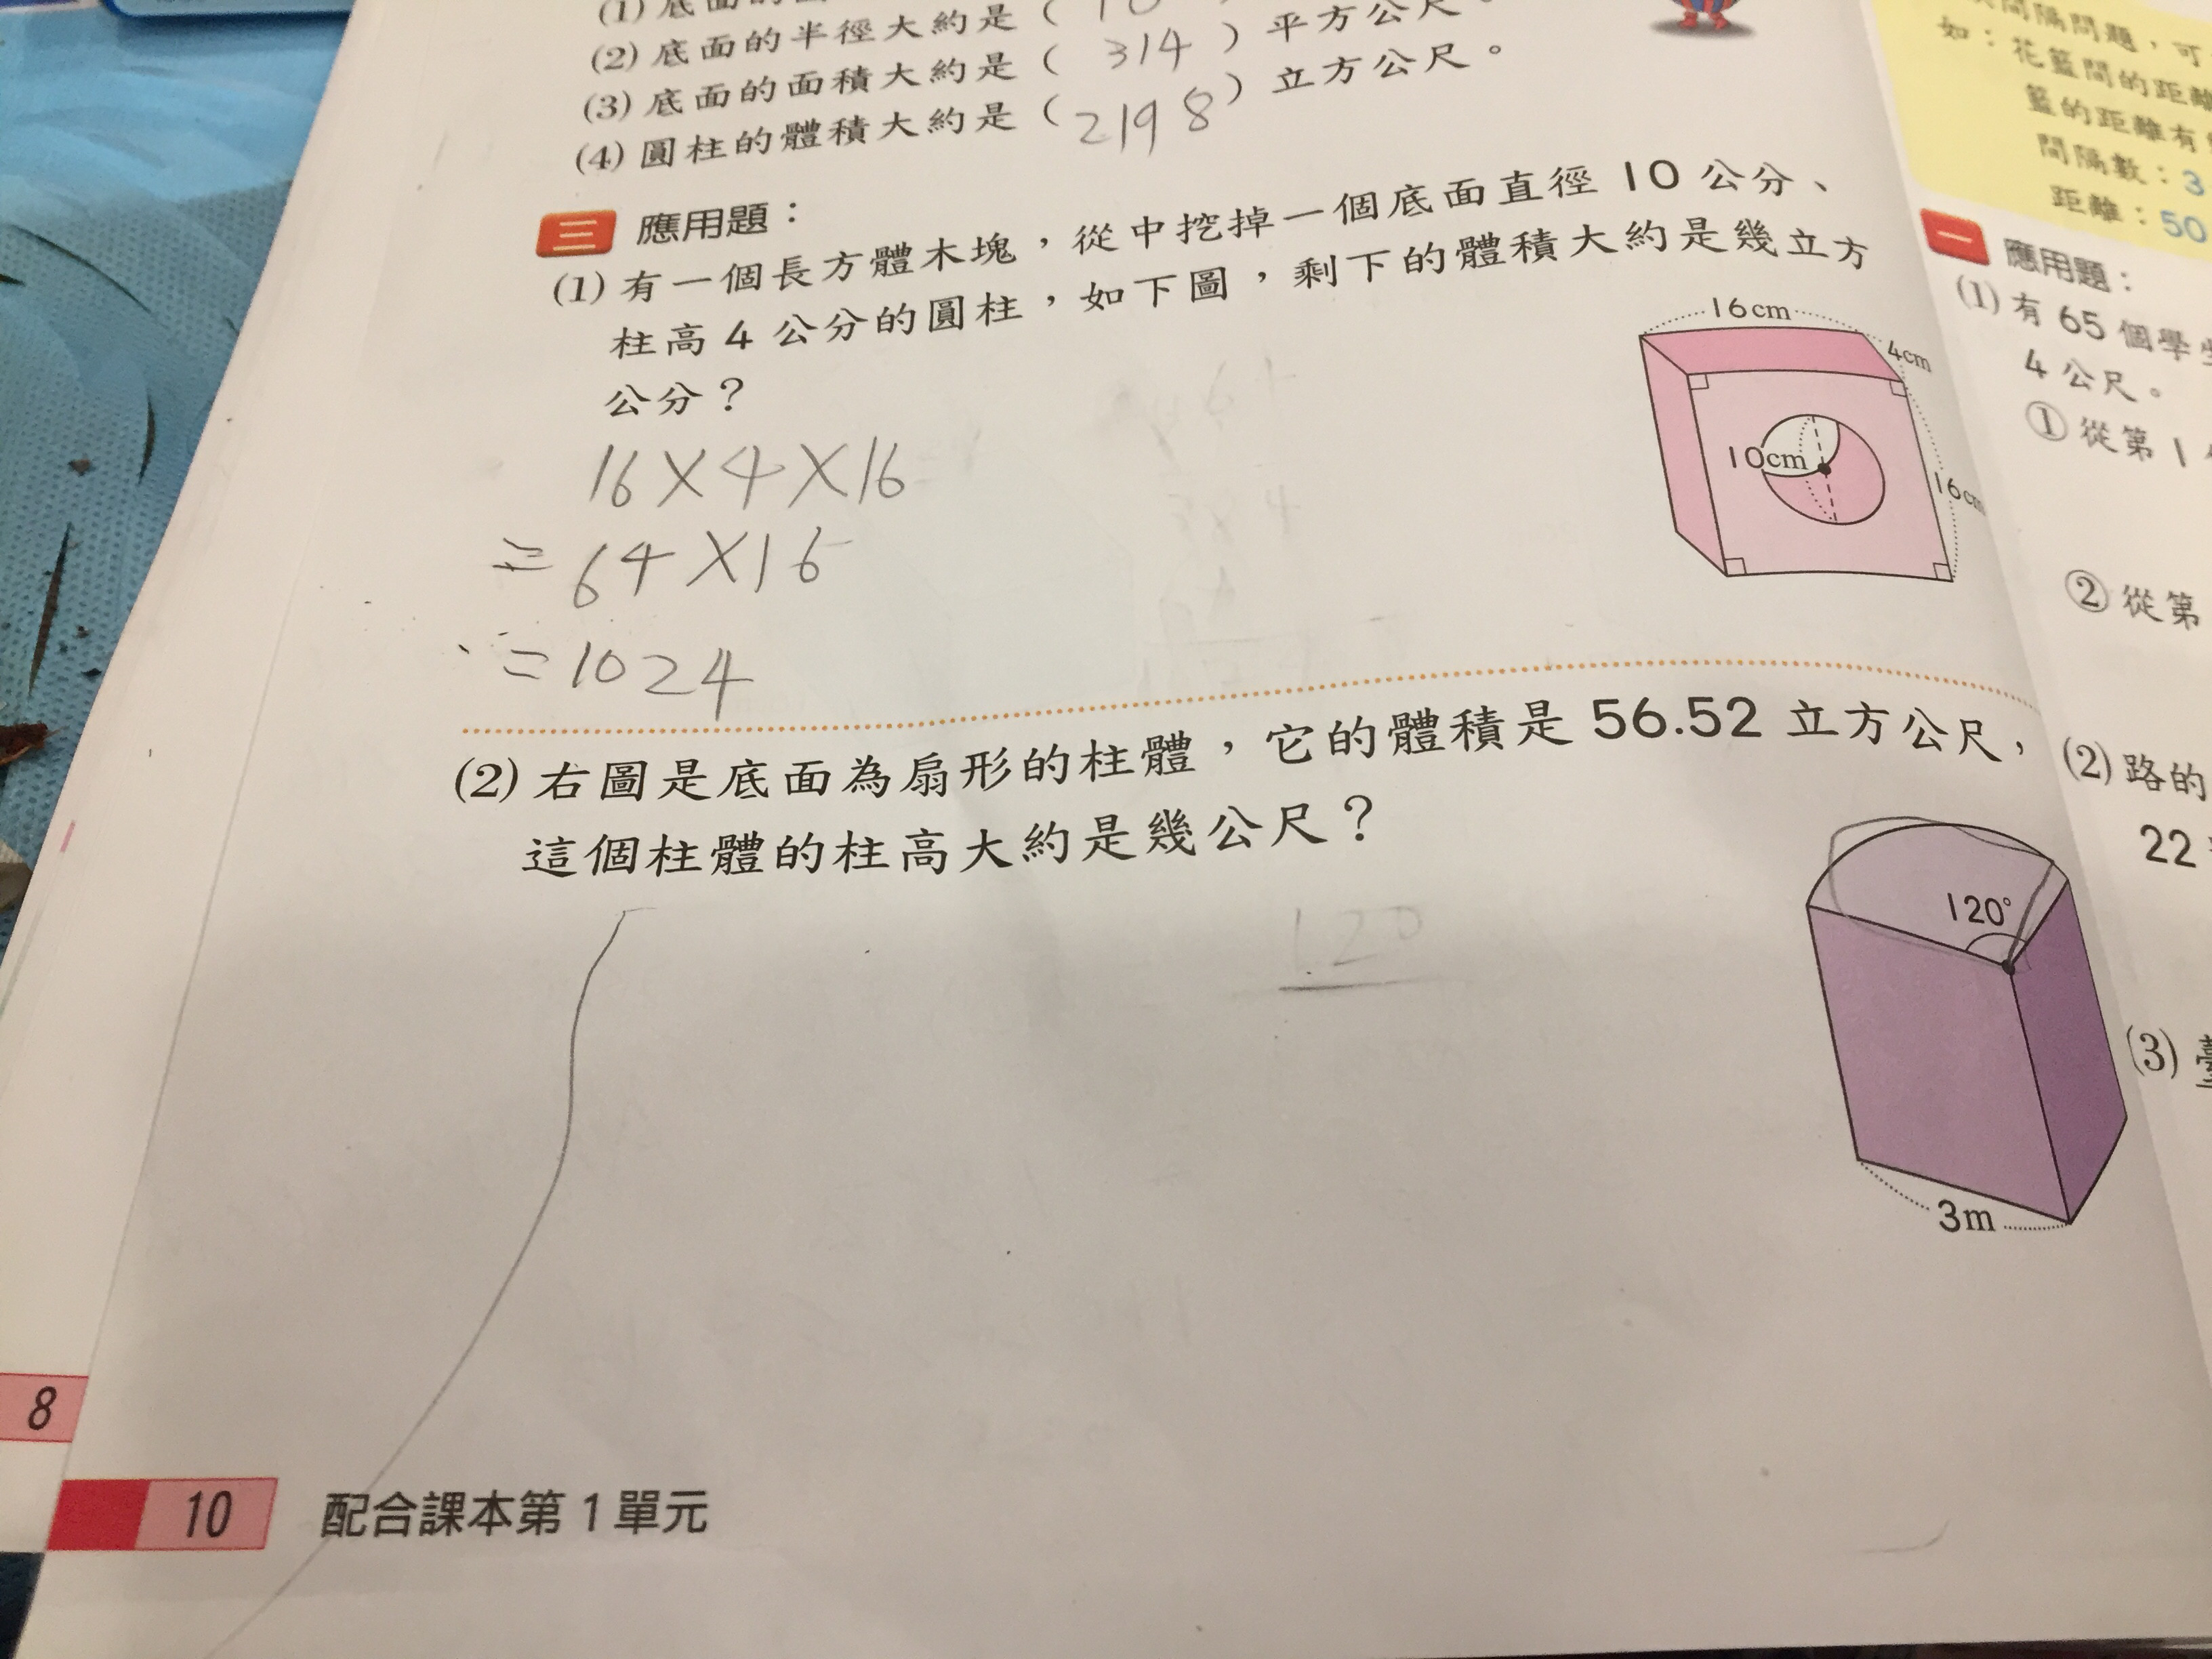 (1) 底面的
(2) 底面的半徑大約是 ( 10
(3) 底面的面積大約是 ( 314 ) 平方公尺。
(4) 圓柱的體積大約是 ( 2198 ) 立方公尺。
三 應用題：
(1) 有一個長方體木塊，從中挖掉一個底面直徑 10 公分、
柱高 4 公分的圓柱，如下圖，剩下的體積大約是幾立方
公分？
16cm
4cm
10cm
16cm
16×4×16
=64×16
=1024
(2) 右圖是底面為扇形的柱體，它的體積是 56.52 立方公尺，
這個柱體的柱高大約是幾公尺？
120
120°
3m
8
10 配合課本第 1 單元
間隔問題，可
如：花籃間的距離
籃的距離有
間隔數：3
距離：50
一 應用題：
(1) 有 65 個學
4 公尺。
① 從第 1
② 從第
(2) 路的
22
(3)